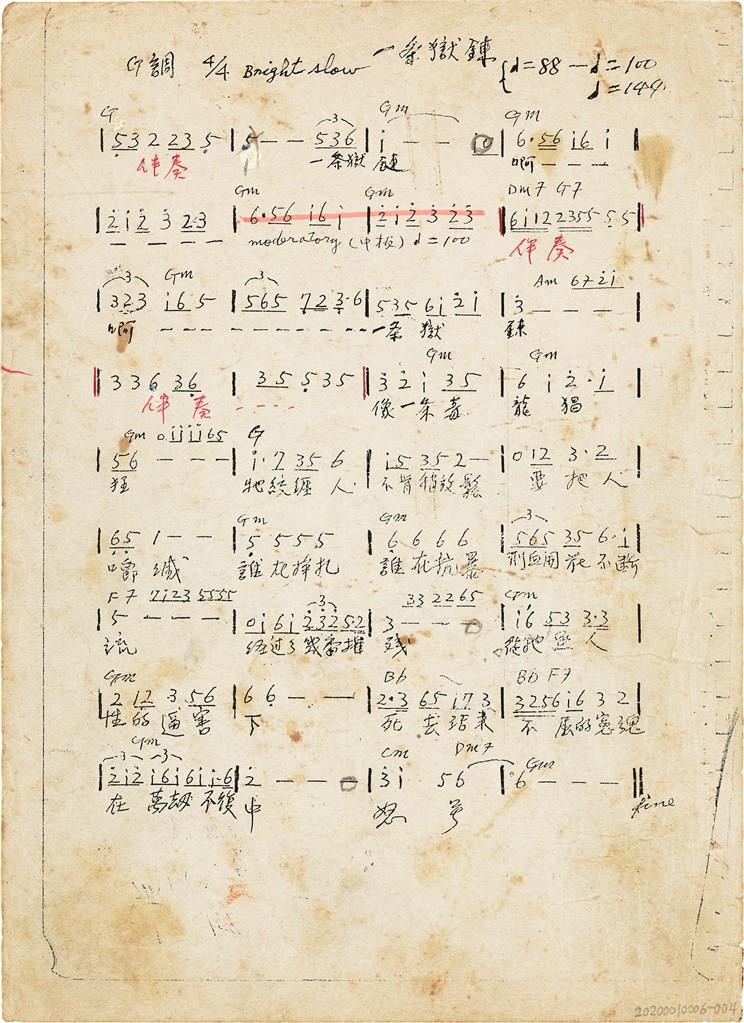 G調 4/4 Bright slow 一条獄鍊 { ♩=88 — ♩=100
♩=144
G Gm Gm
| 5 3 2 2 3 5 | 5 – – 5 3 6 | i – – | 6·5 6 i 6 i |
伴奏 一条獄 鍊 啊 – – –
Gm Gm Dm7 G7
| 2 i 2 3 2·3 | 6·5 6 i 6 i | 2 i 2 3 2 3 | 6 i 1 2 2 3 5 5 5 5 |
moderatory (中板) ♩=100 伴奏
Gm Am 6 7 2 i
| 3 2 3 i 6 5 | 5 6 5 7 2 3·6 | 5 3 5 6 i 2 i | 3 – – – |
啊 – – – 一条 獄 鍊
Gm Gm
| 3 3 6 3 6 | 3 5 5 3 5 | 3 2 i 3 5 | 6 i 2·i |
伴奏 – – – – 像一条毒 龍 猖
Gm 0 i i i i 6 5 G
| 5 6 – – – | i·7 3 5 6 | i 5 3 5 2 – | 0 1 2 3·2 |
狂 牠絞纏 人 不肯稍放鬆 要 把 人
Gm Gm
| 6 5 1 – – | 5 5 5 5 | 6 6 6 6 | 5 6 5 3 5 6·i |
嚼 誰在掙扎 誰在抗暴 不断
F7 7 i 2 3 5 5 5 5 5 3 3 2 2 6 5 Gm
| 5 – – – | 0 i 6 i 2 3 2 5·2 | 3 – – | i 6 5 3 3·3 |
流 经过了 摧 残 人
Gm Bb Bb F7
| 2 1 2 3 5 6 | 6 6 – – | 2·3 6 5 i 7 3 | 3 2 5 6 i 6 3 2 |
性的逼害 下 死去活来 不屈的冤魂
Gm Cm Dm7 Gm
| 2 i 2 i 6 i 6 i i·6 | 2 – – – | 3 i 5 6 | 6 – – – ||
在 萬劫 不復 中 怒 号 fine
2020010006-004